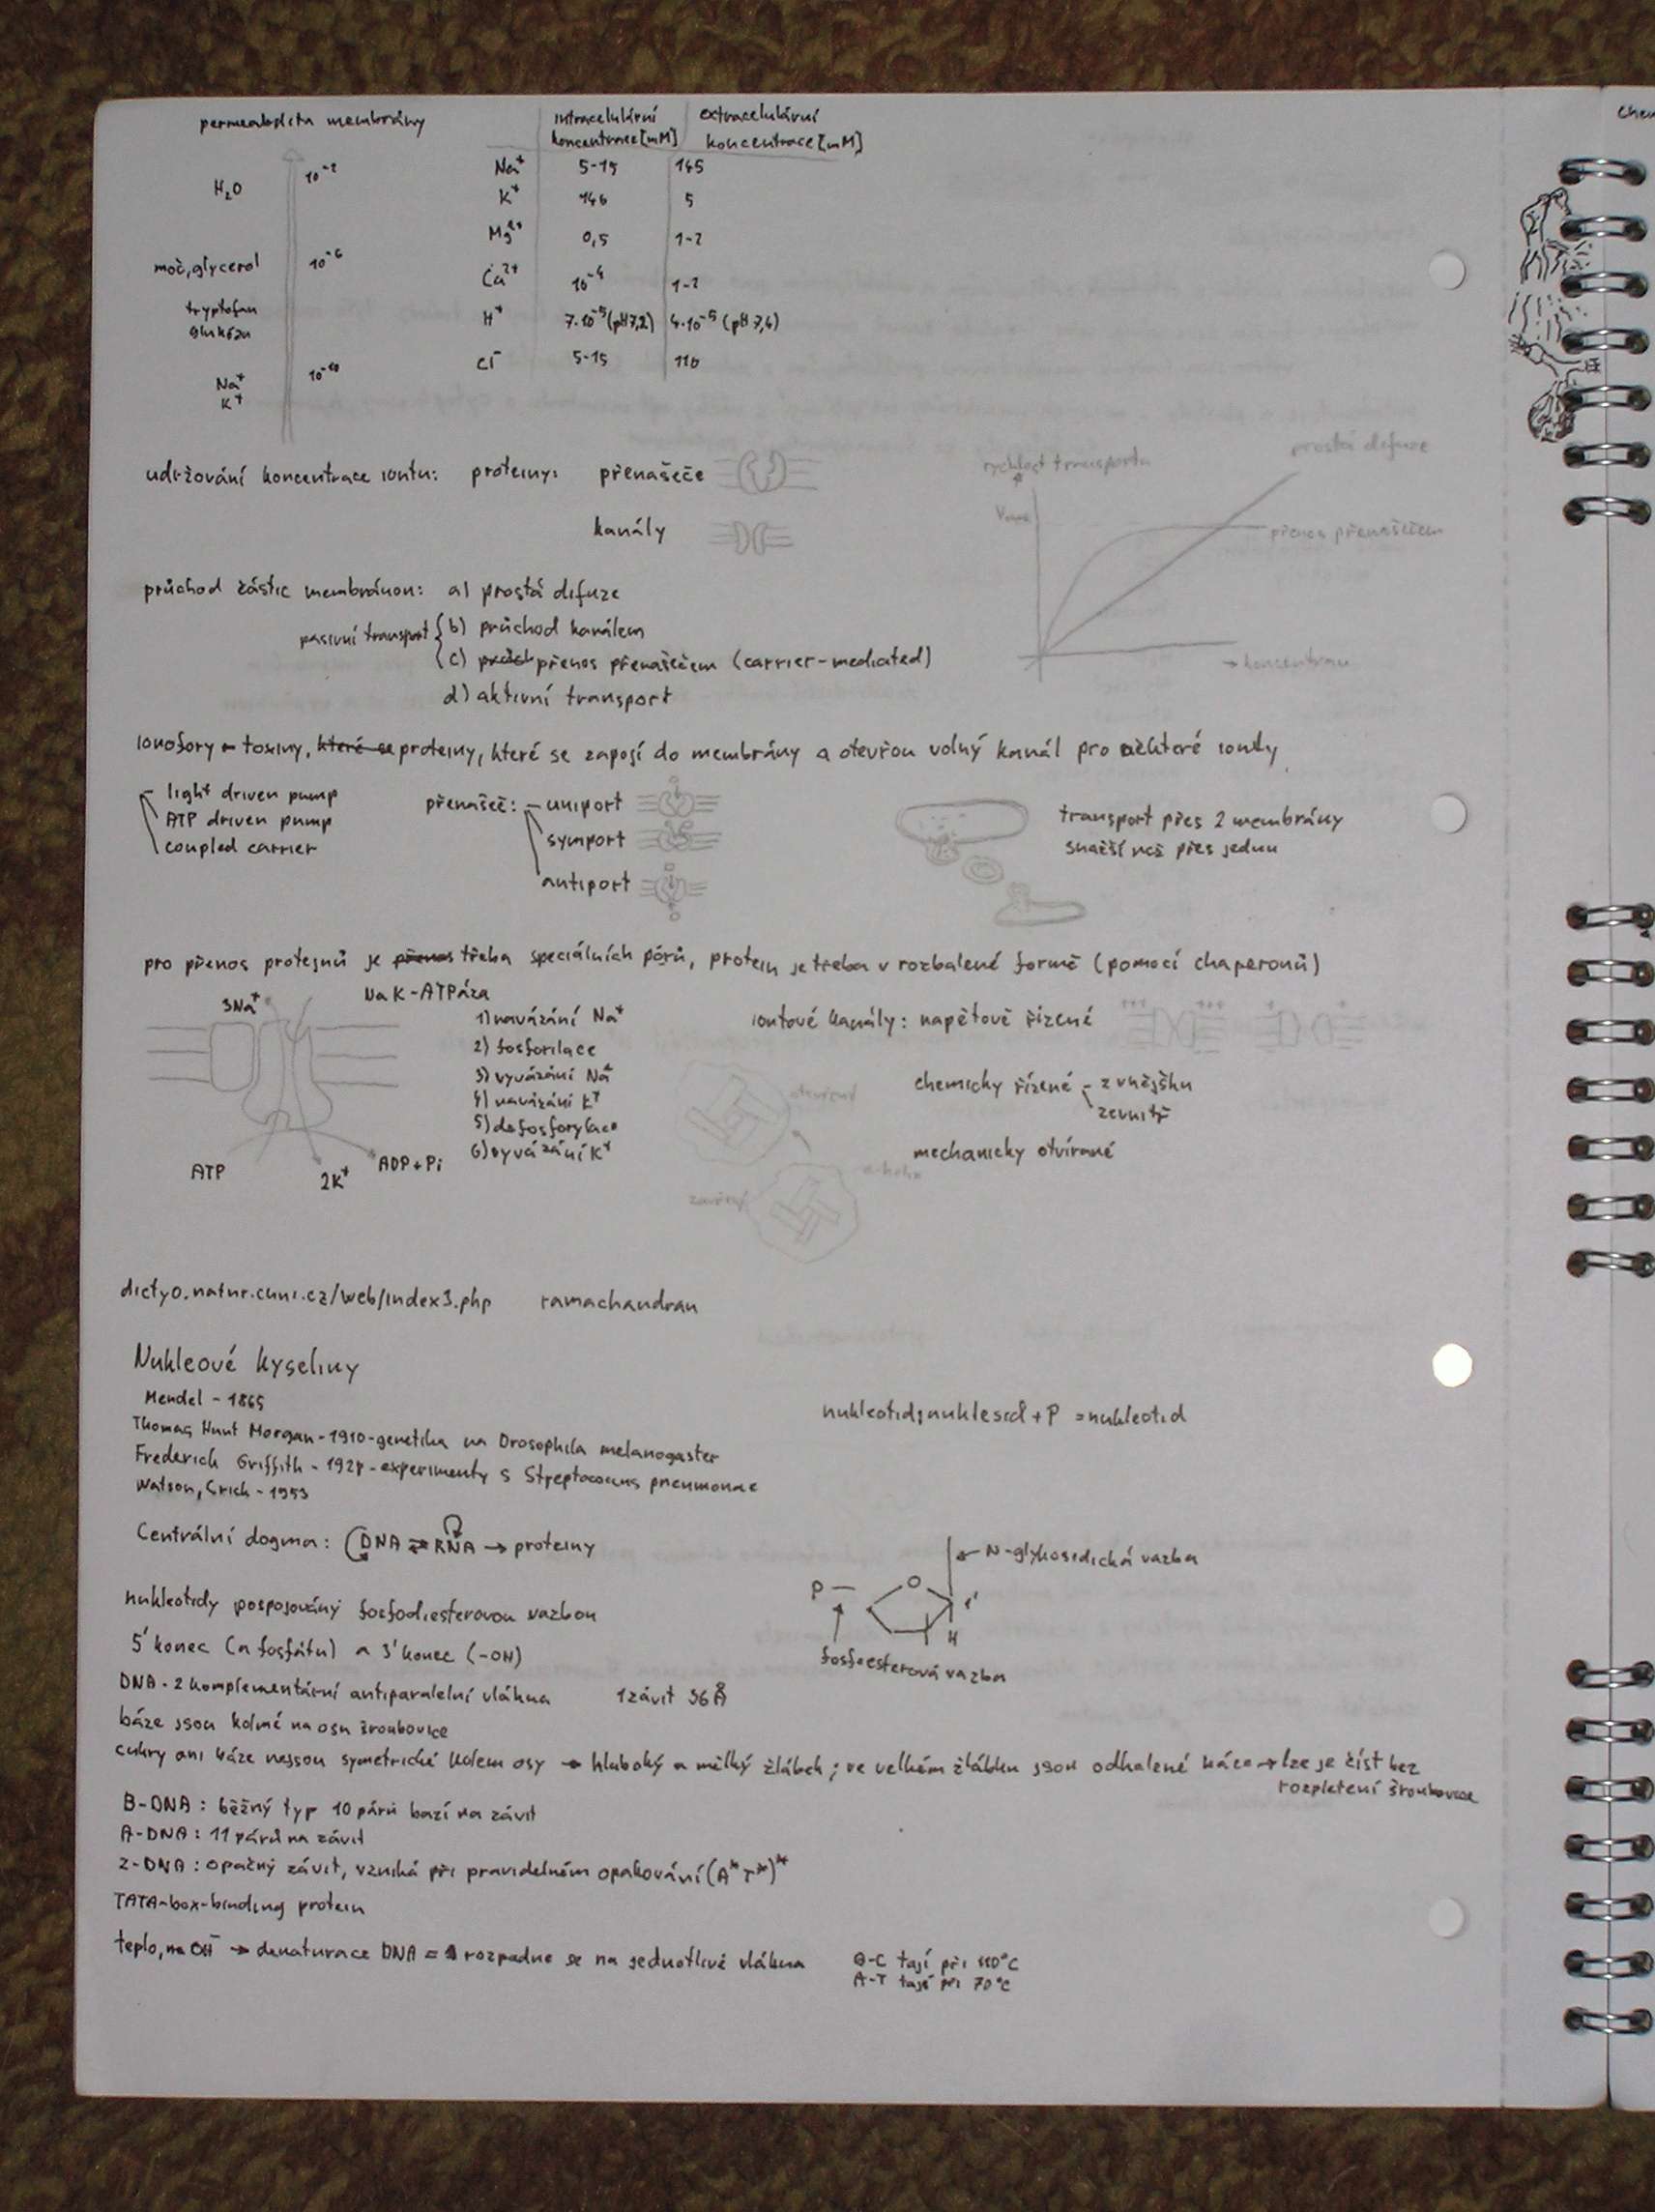 permeabilita membrány
intracelulární koncentrace [mM]
extracelulární koncentrace [mM]
H₂O 10⁻²
moč, glycerol 10⁻⁶
tryptofan
glukóza
Na⁺ 10⁻¹⁰
K⁺
Na⁺ 5-15 145
K⁺ 140 5
Mg²⁺ 0,5 1-2
Ca²⁺ 10⁻⁴ 1-2
H⁺ 7·10⁻⁵ (pH 7,2) 4·10⁻⁵ (pH 7,4)
Cl⁻ 5-15 110
udržování koncentrace iontu: proteiny: přenašeče
kanály
rychlost transportu
prostá difuze
přenos přenašečem
→ koncentrace
průchod částic membránou: a) prostá difuze
pasivní transport b) průchod kanálem
c) přenos přenašečem (carrier-mediated)
d) aktivní transport
ionofory - toxiny, které se proteiny, které se zapojí do membrány a otevřou volný kanál pro některé ionty
light driven pump
ATP driven pump
coupled carrier
přenašeč: uniport
symport
antiport
transport přes 2 membrány
snažší než přes jednu
pro přenos proteinů je přenos třeba speciálních pórů, protein je třeba v rozbalené formě (pomocí chaperonů)
3Na⁺
NaK-ATPáza
1) navázání Na⁺
2) fosforilace
3) vyvázání Na⁺
4) navázání K⁺
5) defosforylace
6) vyvázání K⁺
ATP
2K⁺
ADP+Pi
otevřený
zavřený
α-helix
iontové kanály: napěťově řízené
chemicky řízené - zvnějšku
zevnitř
mechanicky otvírané
dictyo.natur.cuni.cz/web/index3.php ramachandran
Nukleové kyseliny
Mendel - 1865
Thomas Hunt Morgan - 1910 - genetika na Drosophila melanogaster
Frederich Griffith - 1928 - experimenty s Streptococcus pneumonae
Watson, Crick - 1953
nukleotid; nukleosid + P = nukleotid
Centrální dogma: DNA ⇄ RNA → proteiny
nukleotidy pospojovány fosfodiesterovou vazbou
5' konec (a fosfátu) a 3' konec (-OH)
P
O
1'
H
N-glykosidická vazba
fosfoesterová vazba
DNA - 2 komplementární antiparalelní vlákna 1 závit 36 Å
báze jsou kolmé na osu šroubovice
cukry ani báze nejsou symetrické kolem osy → hluboký a mělký žlábek; ve velkém žlábku jsou odhalené báze → lze je číst bez
rozpletení šroubovice
B-DNA: běžný typ 10 párů bazí na závit
A-DNA: 11 párů na závit
Z-DNA: opačný závit, vzniká při pravidelném opakování (A*T*)*
TATA-box-binding protein
teplo, OH⁻ → denaturace DNA = rozpadne se na jednotlivé vlákna
G-C tají při 110°C
A-T tají při 70°C